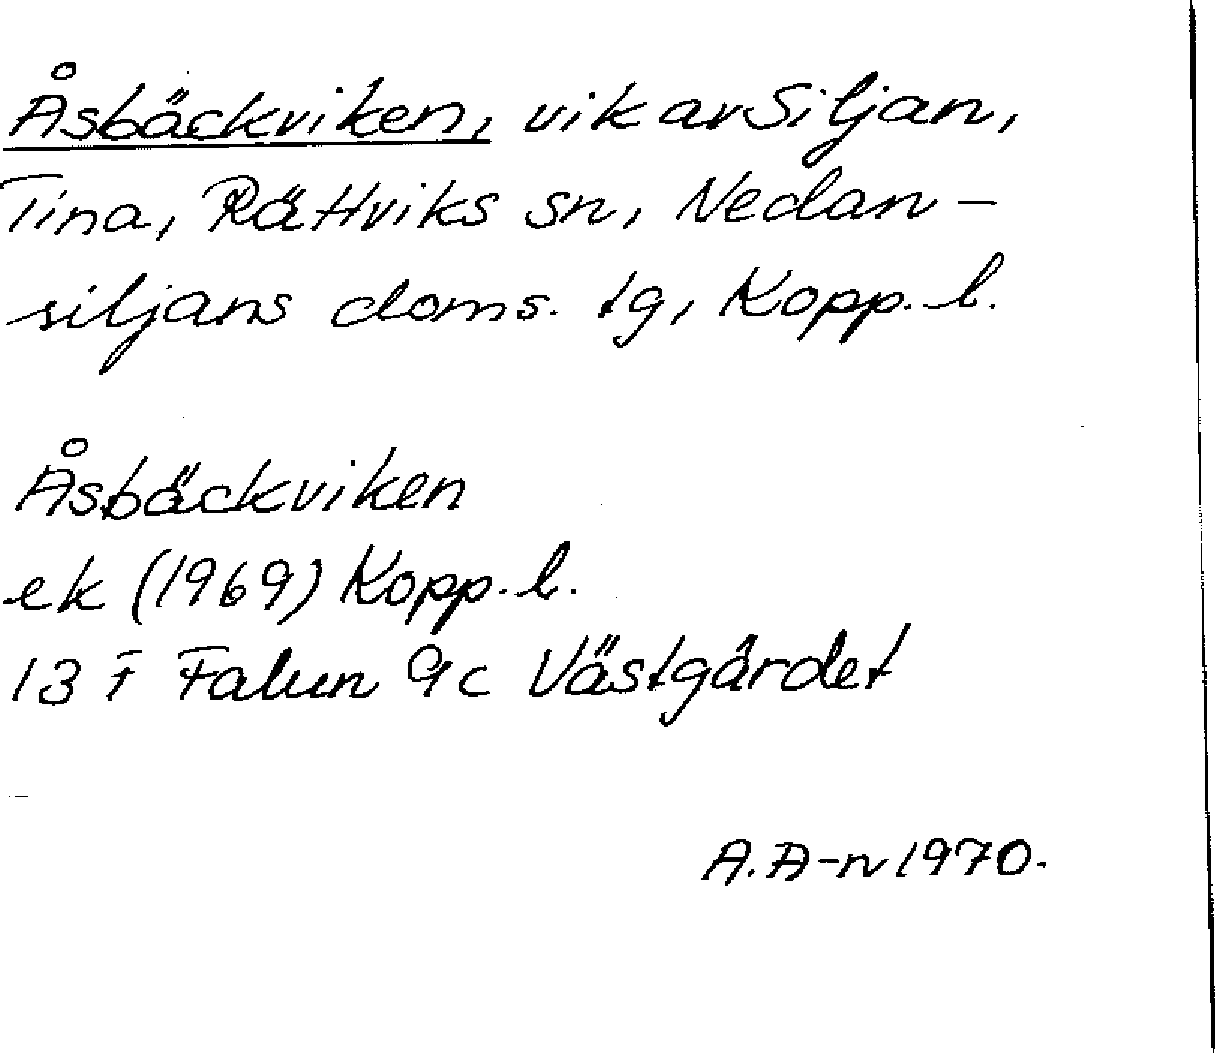 Åsbäckviken, vik av Siljan,
Tina, Rättviks sn, Nedan-
siljans doms. tg, Kopp. l.
Åsbäckviken
ek (1969) Kopp. l.
13 F Falun 9c Västgärdet
A. A-n 1970.